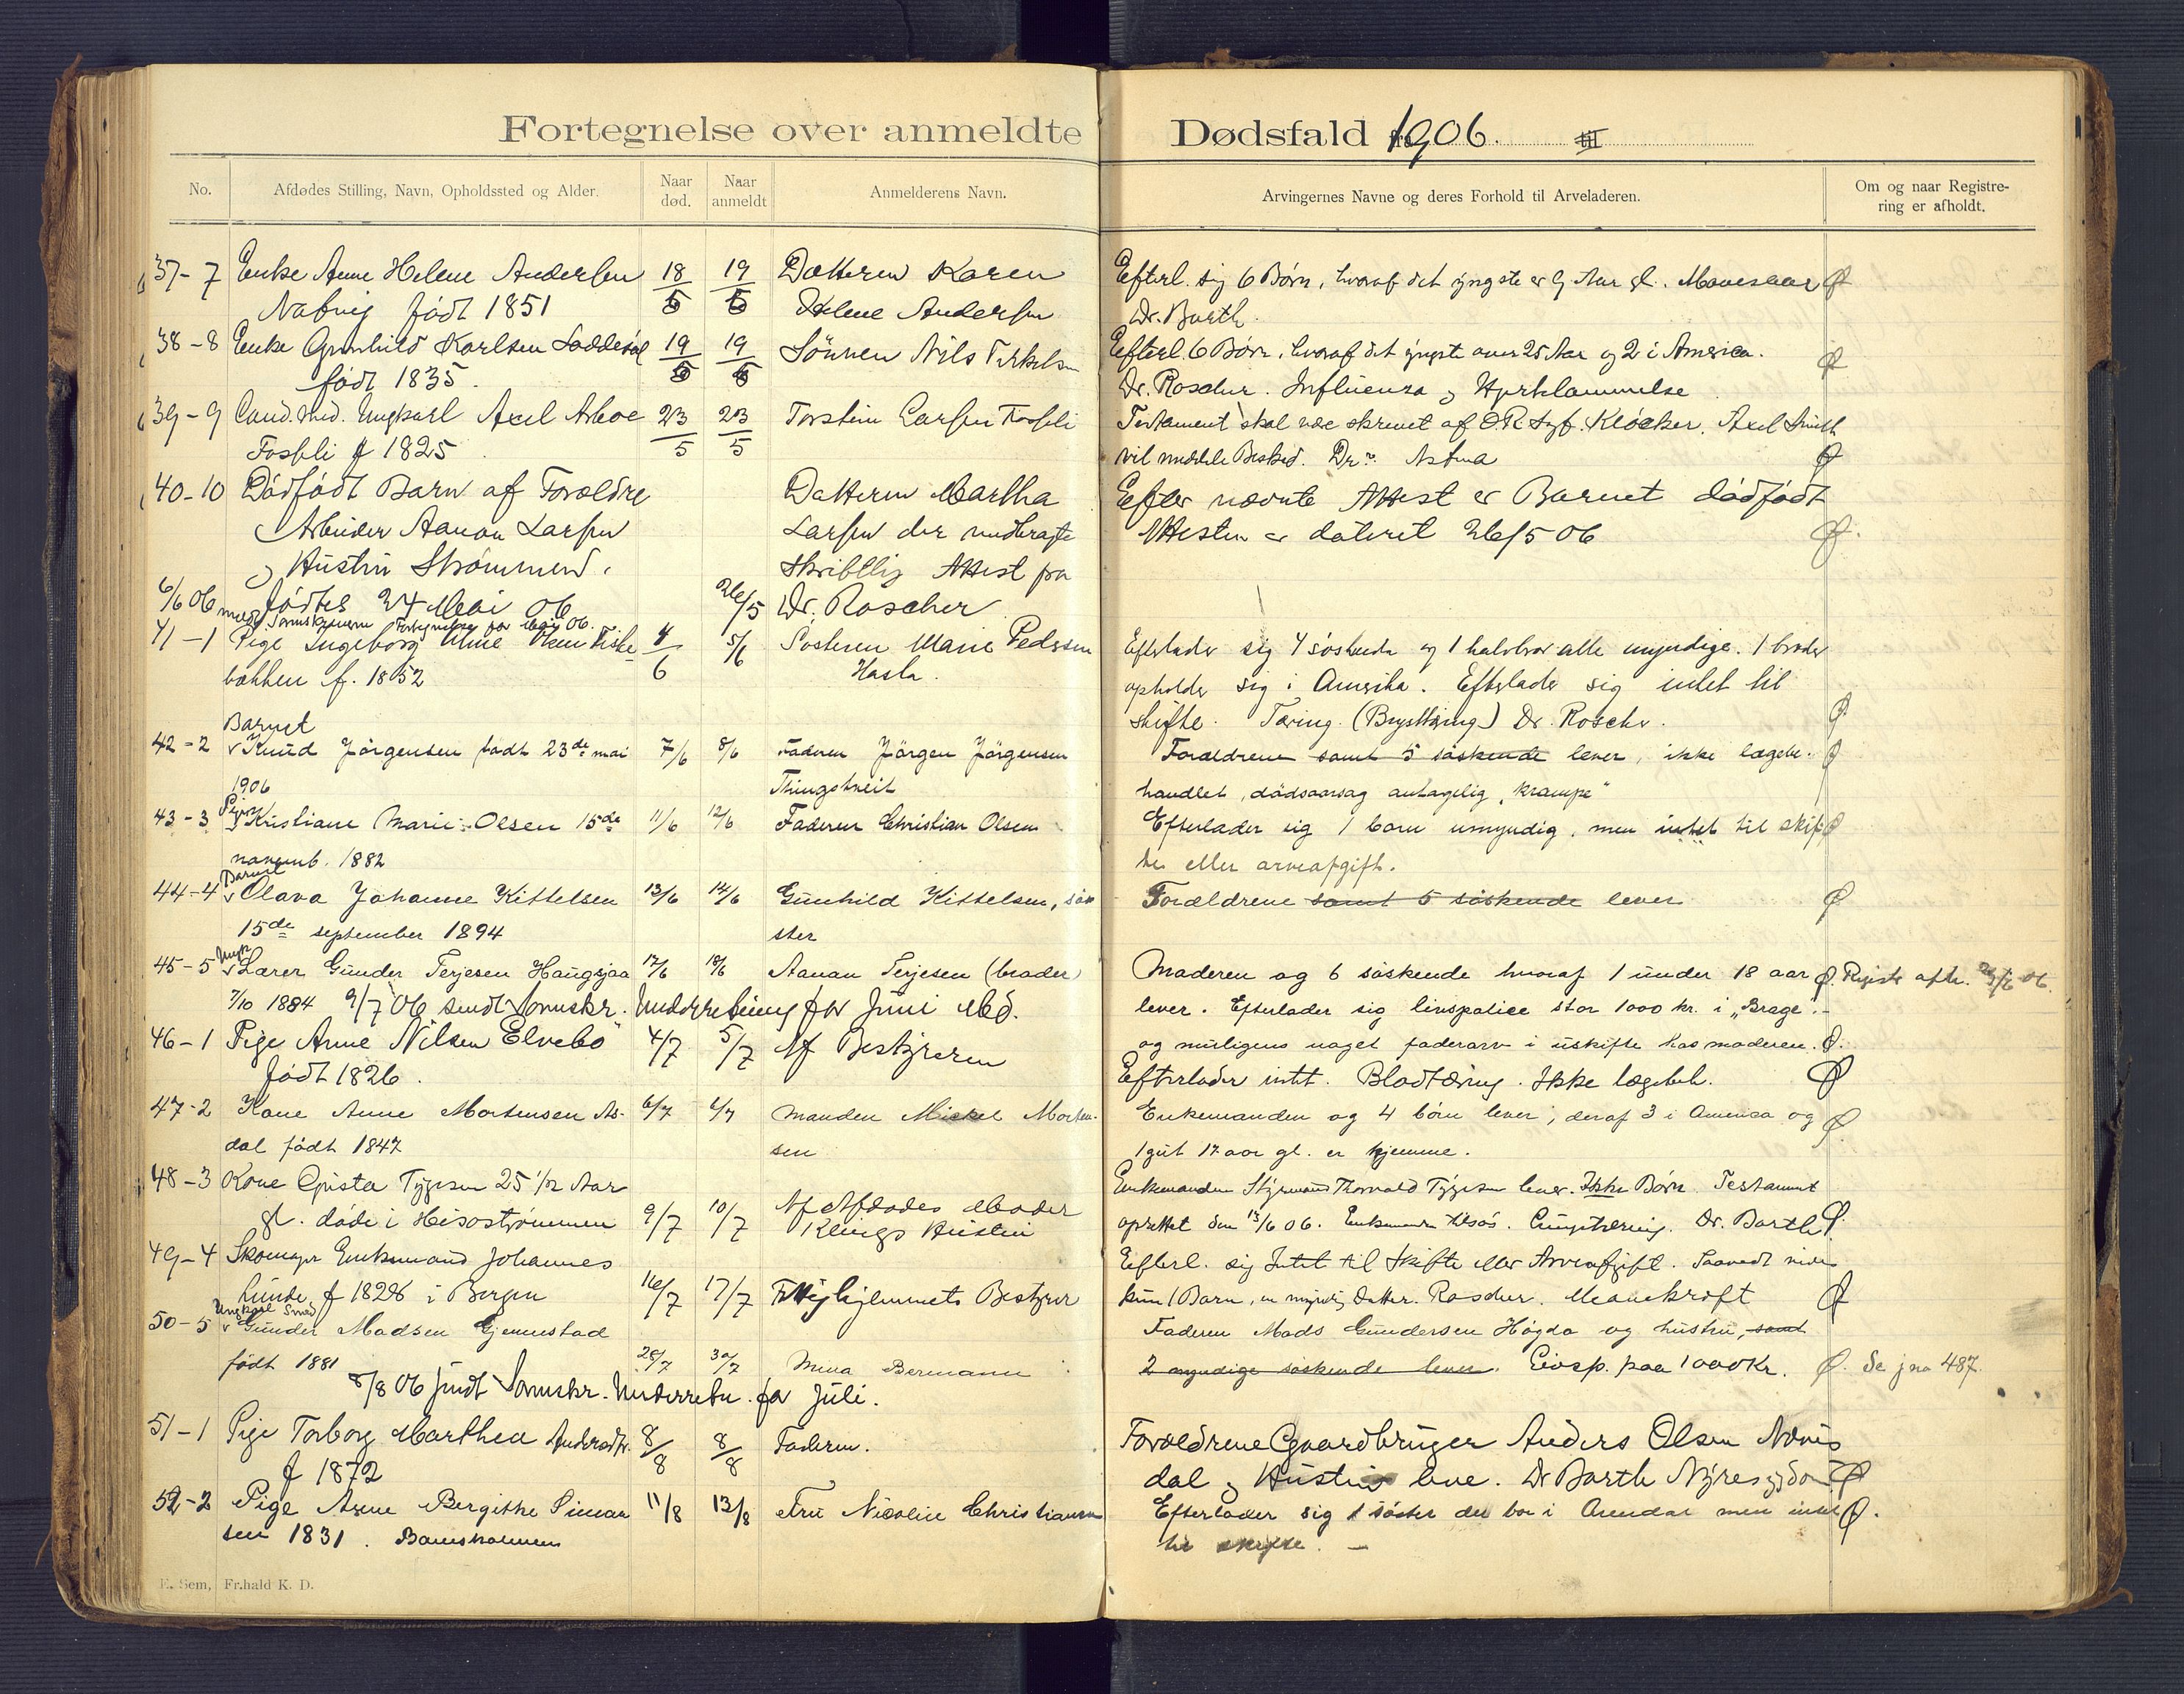 Fortegnelse over anmeldte Dødsfald 1906. til
No.
Afdødes Stilling, Navn, Opholdssted og Alder.
Naar død.
Naar anmeldt
Anmelderens Navn.
Arvingernes Navne og deres Forhold til Arveladeren.
Om og naar Registre-
ring er afholdt.
37-7 Enke Anne Helene Andersen 18/5 19/5 Datteren Karen Efterl. sig 6 Børn, hvoraf det yngste er 9 Aar gl.
født 1851 Helene Andersen Dr. Barth.
38-8 Enke Gunhild Karlsen Løddesøl 19/5 19/5 Sønnen Nils Terkelsen Efterl. 6 Børn, hvoraf det yngste over 25 Aar og 2 i America.
født 1835. Dr. Roscher. Influenza og Hjerklammelse
39-9 Cand. med. Ungkarl Axel Arboe 23/5 23/5 Torstein Larsen Fosbli Testament skal være skrevet af O.R. Sagf. Kløcker. Axel Smith
Fosbli f 1825 vil meddele Besked. Dr. Astma
40-10 Dødfødt Barn af Forældre Datteren Martha Efter nævnte Attest er Barnet dødfødt
Arbeider Aanon Larsen Larsen der medbragte Attesten er dateret 26/5 06
og Hustru Strømmen. Skriftlig Attest fra
fødtes 24 Mai 06 26/5 Dr. Roscher
6/6 06 Sorenskriveren Fortegnelse for Mai 06.
41-1 Pige Ingeborg Anne Olsen Fiske- 4/6 5/6 Søsteren Marie Pedersen Efterlader sig 4 søskende og 1 halvbror alle myndige. 1 broder
bækken f. 1852 Hasla. opholder sig i Amerika. Efterlader sig intet til
skifte. Tæring. (Brysttæring) Dr. Roscher.
Barnet
42-2 Knud Jørgensen født 23de mai 7/6 8/6 Faderen Jørgen Jørgensen Forældrene samt 5 søskende lever, ikke lægebe-
1906 Thingstveit handlet, dødsaarsag antagelig "krampe"
Pigen
43-3 Kristiane Marie Olsen 15de 11/6 12/6 Faderen Christian Olsen Efterlader sig 1 barn umyndig, men intet til skif-
novemb. 1882 te eller arveafgift.
Barnet
44-4 Olava Johanne Kittelsen 13/6 14/6 Gunhild Kittelsen, søs- Forældrene samt 5 søskende lever
15de september 1894 ster
Ungk.
45-5 Lærer Gunder Terjesen Haugsjaa 17/6 18/6 Aanon Terjesen (broder) Moderen og 6 søskende hvoraf 1 under 18 aar Registr. afh.
7/10 1884 lever. Efterlader sig livspolice stor 1000 kr. i "Brage".-
9/7 06 sendt Sorenskr. Underretning for Juni Md. og muligens noget faderarv i uskifte hos moderen.
46-1 Pige Anne Nilsen Elvebø 4/7 5/7 Af Bestyreren Efterlader intet. Blodtæring. Ikke lægebeh.
født 1826.
47-2 Kone Anne Mortensen As- 6/7 6/7 Manden Mickel Morten- Enkemanden og 4 børn lever, deraf 3 i America og
dal født 1847 sen 1 gut 17 aar gl. er hjemme.
48-3 Kone Gusta Tygesen 25 1/2 Aar Enkemanden Styrmand Thorvald Tygesen lever. Ikke Børn. Testament
gl. døde i Hisøstrømmen 9/7 10/7 Af Afdødes Moder oprettet den 13/6 06. Enkemanden tilsøs. Lungetæring. Dr. Barth
Klings Hustru
49-4 Skomager Enkemand Johannes Efterl. sig Intet til Skifte eller Arveafgift. Saavidt vides
Lunde f 1828 i Bergen 16/7 17/7 Pleiehjemmets Bestyrer kun 1 Barn, en myndig Datter. Roscher. Mavekræft
Ungkarl Smed
50-5 Gunder Madsen Gjennestad Faderen Mads Gundersen Høgda og hustru, samt
født 1881 28/7 30/7 Mina Bermann 2 myndige søskende lever. Livsp. paa 1000 Kr. Se jno 487.
8/8 06 sendt Sorenskr. Underretn. for Juli.
51-1 Pige Torborg Marthea Andersdtr. 8/8 8/8 Faderen. Forældrene Gaardbruger Anders Olsen Næves
f 1872 dal og Hustru leve. Dr Barth Nyresygdom
52-2 Pige Anne Bergithe Simon 11/8 13/8 Fru Nicoline Christiansen Efterlader sig 1 søster der bor i Arendal men intet
sen 1831. Bomsholmen til skifte. -
E. Sem, Fr.hald K. D.